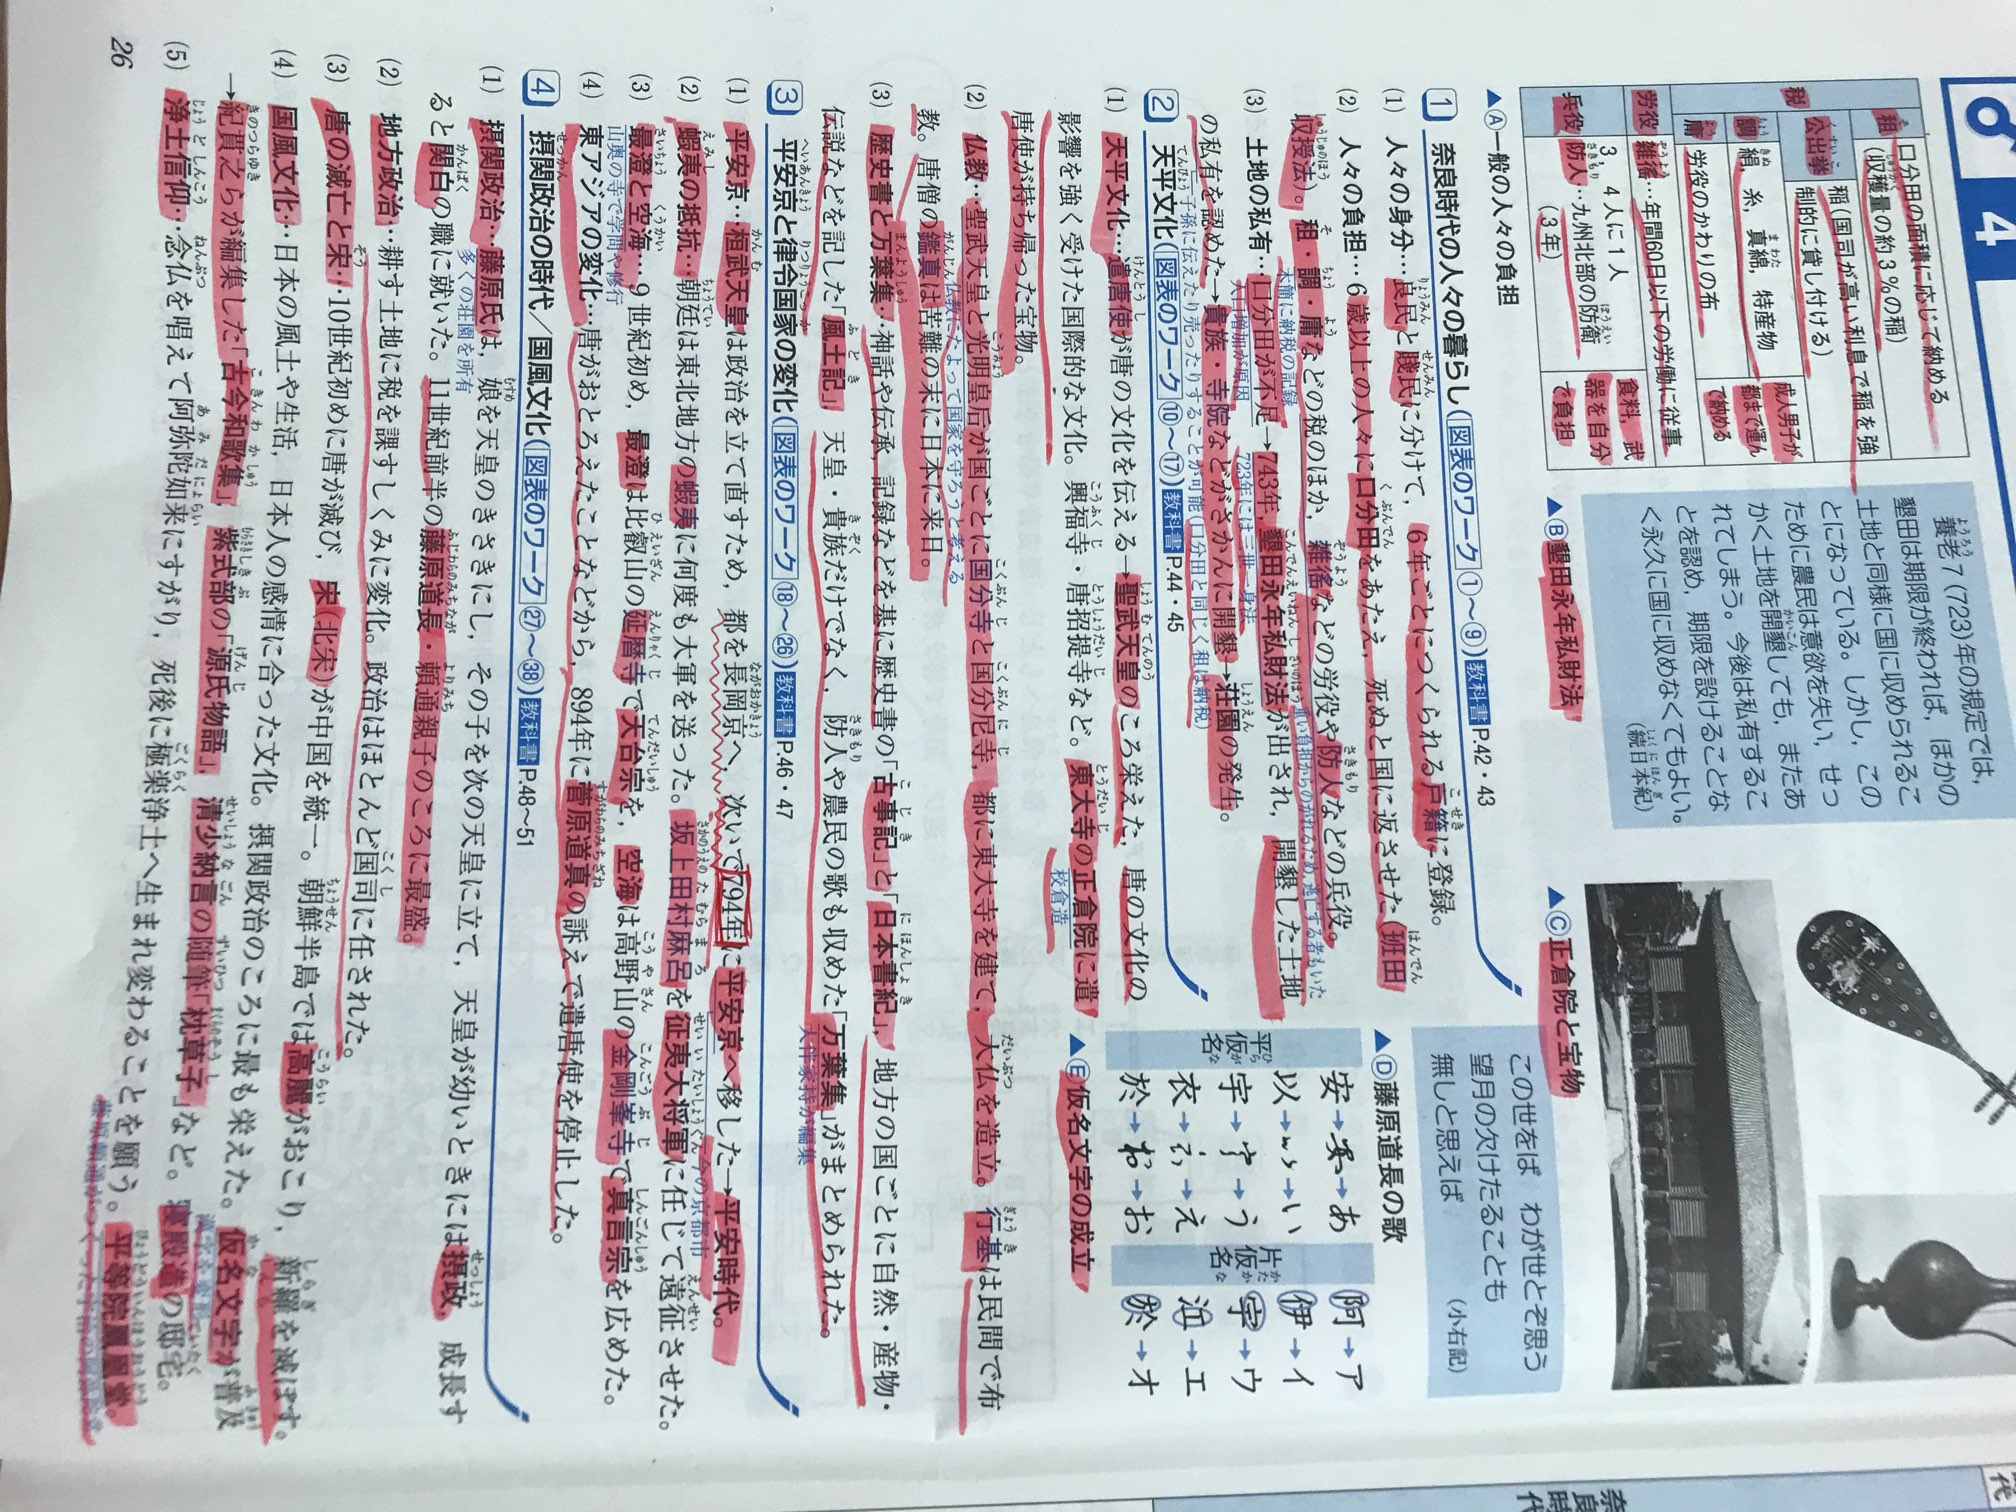 4
租
口分田の面積に応じて納める
(収穫量の約3%の稲)
税
公出挙
稲(国司が高い利息で稲を強
制的に貸し付ける)
調
絹,糸,真綿,特産物
庸
労役のかわりの布
成人男子が
都まで運ん
で納める
労役
雑徭…年間60日以下の労働に従事
兵役
3〜4人に1人
防人…九州北部の防衛
(3年)
食料,武
器を自分
で負担
▲Ⓐ一般の人々の負担
養老7(723)年の規定では,
墾田は期限が終われば,ほかの
土地と同様に国に収められるこ
とになっている。しかし,この
ために農民は意欲を失い,せっ
かく土地を開墾しても,またあ
れてしまう。今後は私有するこ
とを認め,期限を設けることな
く永久に国に収めなくてもよい。
(続日本紀)
▲Ⓑ墾田永年私財法
▲Ⓒ正倉院と宝物
この世をば わが世とぞ思う
望月の欠けたることも
無しと思えば (小右記)
▲Ⓓ藤原道長の歌
平仮名
安→あ
以→い
宇→う
衣→え
於→お
片仮名
阿→ア
伊→イ
宇→ウ
江→エ
於→オ
▲Ⓔ仮名文字の成立
1 奈良時代の人々の暮らし(図表のワーク①〜⑨)教科書P.42・43
(1) 人々の身分…良民と賤民に分けて,6年ごとにつくられる戸籍に登録。
(2) 人々の負担…6歳以上の人々に口分田をあたえ,死ぬと国に返させた(班田
収授法)。租・調・庸などの税のほか,雑徭などの労役や防人などの兵役。
木簡に納税の記録
重い負担からのがれるため,逃亡する者もいた
(3) 土地の私有…口分田が不足→743年 墾田永年私財法が出され,開墾した土地
人口増加が原因
723年には三世一身法
の私有を認めた→貴族・寺院などがさかんに開墾→荘園の発生。
子孫に伝えたり売ったりすることが可能(口分田と同じく租は納税)
2 天平文化(図表のワーク⑩〜⑰)教科書P.44・45
(1) 天平文化…遣唐使が唐の文化を伝える→聖武天皇のころ栄えた,唐の文化の
影響を強く受けた国際的な文化。興福寺・唐招提寺など。東大寺の正倉院に遣
校倉造
唐使が持ち帰った宝物。
(2) 仏教…聖武天皇と光明皇后が国ごとに国分寺と国分尼寺,都に東大寺を建て,大仏を造立。行基は民間で布
仏教にたよって国家を守ろうと考える
教。唐僧の鑑真は苦難の末に日本に来日。
(3) 歴史書と万葉集…神話や伝承,記録などを基に歴史書の「古事記」と「日本書紀」,地方の国ごとに自然・産物・
伝説などを記した「風土記」 天皇・貴族だけでなく,防人や農民の歌も収めた「万葉集」がまとめられた。
大伴家持が編集
3 平安京と律令国家の変化(図表のワーク⑱〜㉖)教科書P.46・47
(1) 平安京…桓武天皇は政治を立て直すため,都を長岡京へ,次いで794年に平安京へ移した→平安時代。
今の京都市
(2) 蝦夷の抵抗…朝廷は東北地方の蝦夷に何度も大軍を送った。坂上田村麻呂を征夷大将軍に任じて遠征させた。
(3) 最澄と空海…9世紀初め,最澄は比叡山の延暦寺で天台宗を,空海は高野山の金剛峯寺で真言宗を広めた。
山奥の寺で学問や修行
(4) 東アジアの変化…唐がおとろえたことなどから,894年に菅原道真の訴えで遣唐使を停止した。
4 摂関政治の時代/国風文化(図表のワーク㉗〜㊳)教科書P.48〜51
(1) 摂関政治…藤原氏は,娘を天皇のきさきにし,その子を次の天皇に立て,天皇が幼いときには摂政,成長す
多くの荘園を所有
ると関白の職に就いた。11世紀前半の藤原道長・頼通親子のころに最盛。
(2) 地方政治…耕す土地に税を課すしくみに変化。政治はほとんど国司に任された。
(3) 唐の滅亡と宋…10世紀初めに唐が滅び,宋(北宋)が中国を統一。朝鮮半島では高麗がおこり,新羅を滅ぼす。
(4) 国風文化…日本の風土や生活,日本人の感情に合った文化。摂関政治のころに最も栄えた。仮名文字が普及
漢字を変形
→紀貫之らが編集した「古今和歌集」,紫式部の「源氏物語」,清少納言の随筆「枕草子」など。寝殿造の邸宅。
(5) 浄土信仰…念仏を唱えて阿弥陀如来にすがり,死後に極楽浄土へ生まれ変わることを願う。平等院鳳凰堂。
26
奈良時代